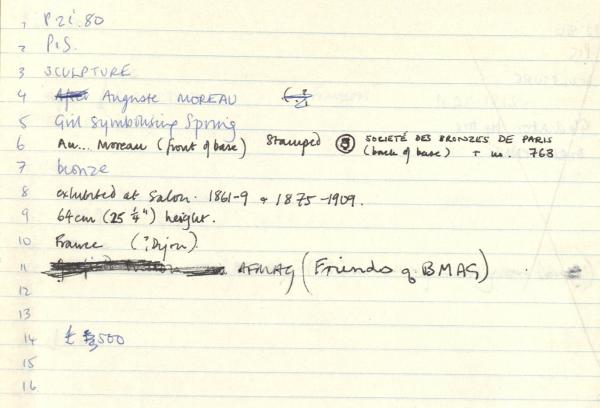 1 P21.80
2 P.S.
3 SCULPTURE
4 After Auguste MOREAU
5 Girl Symbolising Spring
6 Au... Moreau (front of base) Stamped SOCIETÉ DES BRONZES DE PARIS
(back of base) + no. 763
7 bronze
8 exhibited at Salon. 1861-9 + 1875-1909.
9 64cm (25 ¼") height.
10 France (?Dijon)
11 AFMAG (Friends of BMAG)
12
13
14 £ 500
15
16